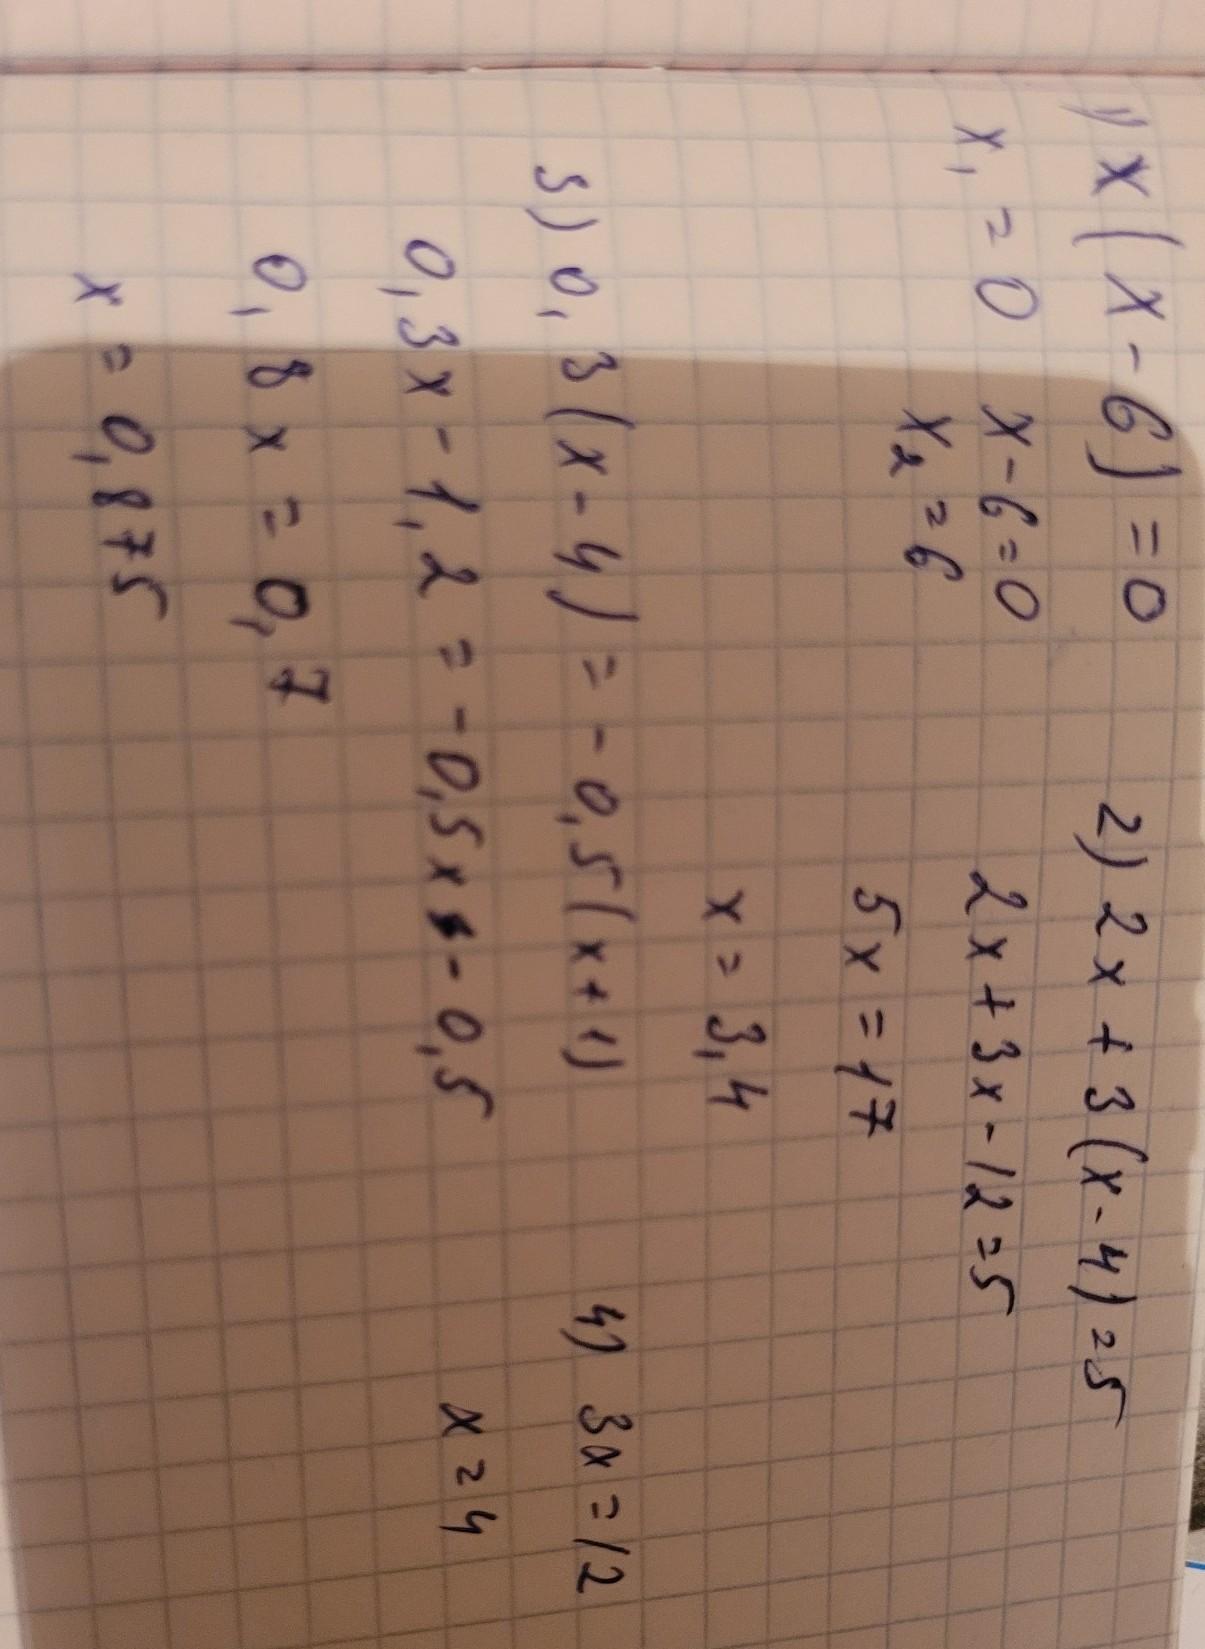 1) x(x-6)=0
x₁=0 x-6=0
x₂=6
2) 2x+3(x-4)=5
2x+3x-12=5
5x=17
x=3,4
3) 0,3(x-4)=-0,5(x+1)
0,3x-1,2=-0,5x-0,5
0,8x=0,7
x=0,875
4) 3x=12
x=4